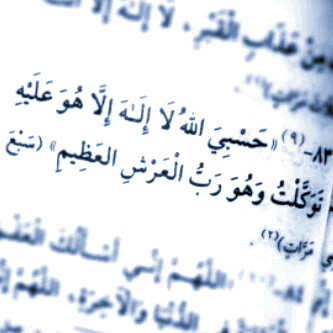 مِنْ عَذَابِ الْقَبْرِ، لَا إِلَهَ إِلَّا
٨٣-(٩) «حَسْبِيَ اللهُ لَا إِلَٰهَ إِلَّا هُوَ عَلَيْهِ
تَوَكَّلْتُ وَهُوَ رَبُّ الْعَرْشِ الْعَظِيمِ» (سَبْعَ
مَرَّاتٍ)(٢).
٨٤- «اللَّهُمَّ إِنِّي أَسْأَلُكَ الْعَفْوَ
فِي الدُّنْيَا وَالْآخِرَةِ، اللَّهُمَّ إِنِّي